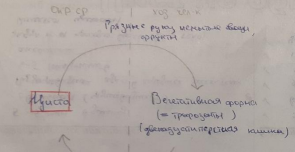 Окр. ср
Грязные руки, немытые овощи,
фрукты
Циста
Вегетативная форма
(= трофозоиты)
(двенадцатиперстная кишка)